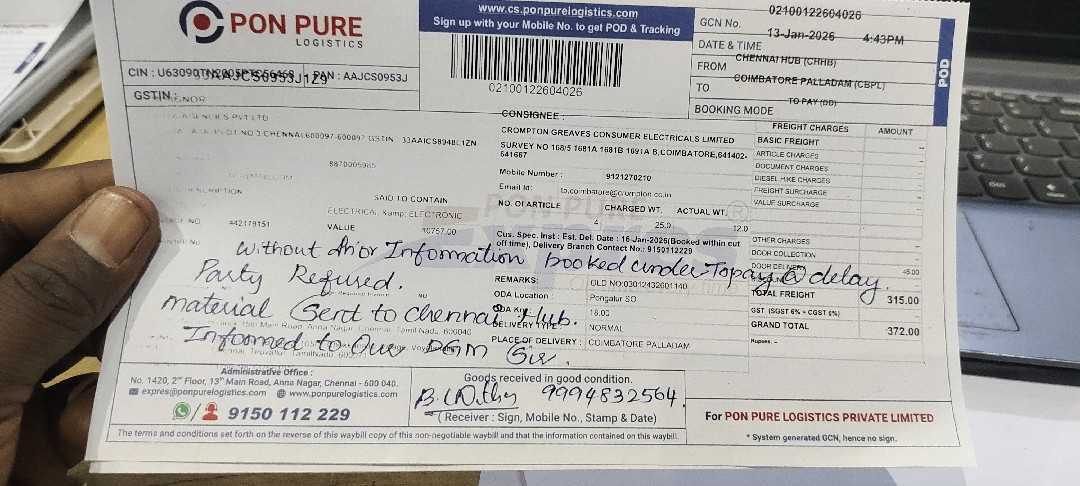 PON PURE
LOGISTICS
www.cs.ponpurelogistics.com
Sign up with your Mobile No. to get POD & Tracking
02100122604026
GCN No. 02100122604026
DATE & TIME 13-Jan-2026 4:43PM
FROM CHENNAI HUB (CHHB)
TO COIMBATORE PALLADAM (CBPL)
BOOKING MODE TO PAY (DD)
POD
CIN : PAN : AAJCS0953J
GSTIN:
CONSIGNEE :
CROMPTON GREAVES CONSUMER ELECTRICALS LIMITED
SURVEY NO 168/5 1681A 1681B 1691A B,COIMBATORE,641402-
641667
Mobile Number : 9121270210
Email Id: to.coimbatore@crompton.co.in
NO. OF ARTICLE CHARGED WT. ACTUAL WT.
4 25.0 12.0
Cus. Spec. Inst : Est. Del. Date : 16-Jan-2026(Booked within cut
off time), Delivery Branch Contact No.: 9150112229
REMARKS: OLD NO:03012432601140
ODA Location : Pongalur SO
18.00
DELIVERY TYPE NORMAL
PLACE OF DELIVERY : COIMBATORE PALLADAM
PVT LTD
8870005985
SAID TO CONTAIN
ELECTRICAL &amp; ELECTRONIC
442179151 VALUE 10757.00
FREIGHT CHARGES AMOUNT
BASIC FREIGHT
ARTICLE CHARGES
DOCUMENT CHARGES
DIESEL HIKE CHARGES
FREIGHT SURCHARGE
VALUE SURCHARGE
OTHER CHARGES
DOOR COLLECTION
DOOR DELIVERY 45.00
TOTAL FREIGHT 315.00
GST (SGST 6% + CGST 6%)
GRAND TOTAL 372.00
Rupees. –
Without Prior Information booked under Topay @ delay.
Party Refused.
Material Sent to chennai Hub.
Informed to Our DGM Sir.
Administrative Office :
No. 1420, 2nd Floor, 13th Main Road, Anna Nagar, Chennai - 600 040.
expres@ponpurelogistics.com www.ponpurelogistics.com
9150 112 229
Goods received in good condition.
9994832564
(Receiver : Sign, Mobile No., Stamp & Date)
For PON PURE LOGISTICS PRIVATE LIMITED
* System generated GCN, hence no sign.
The terms and conditions set forth on the reverse of this waybill copy of this non-negotiable waybill and that the information contained on this waybill.